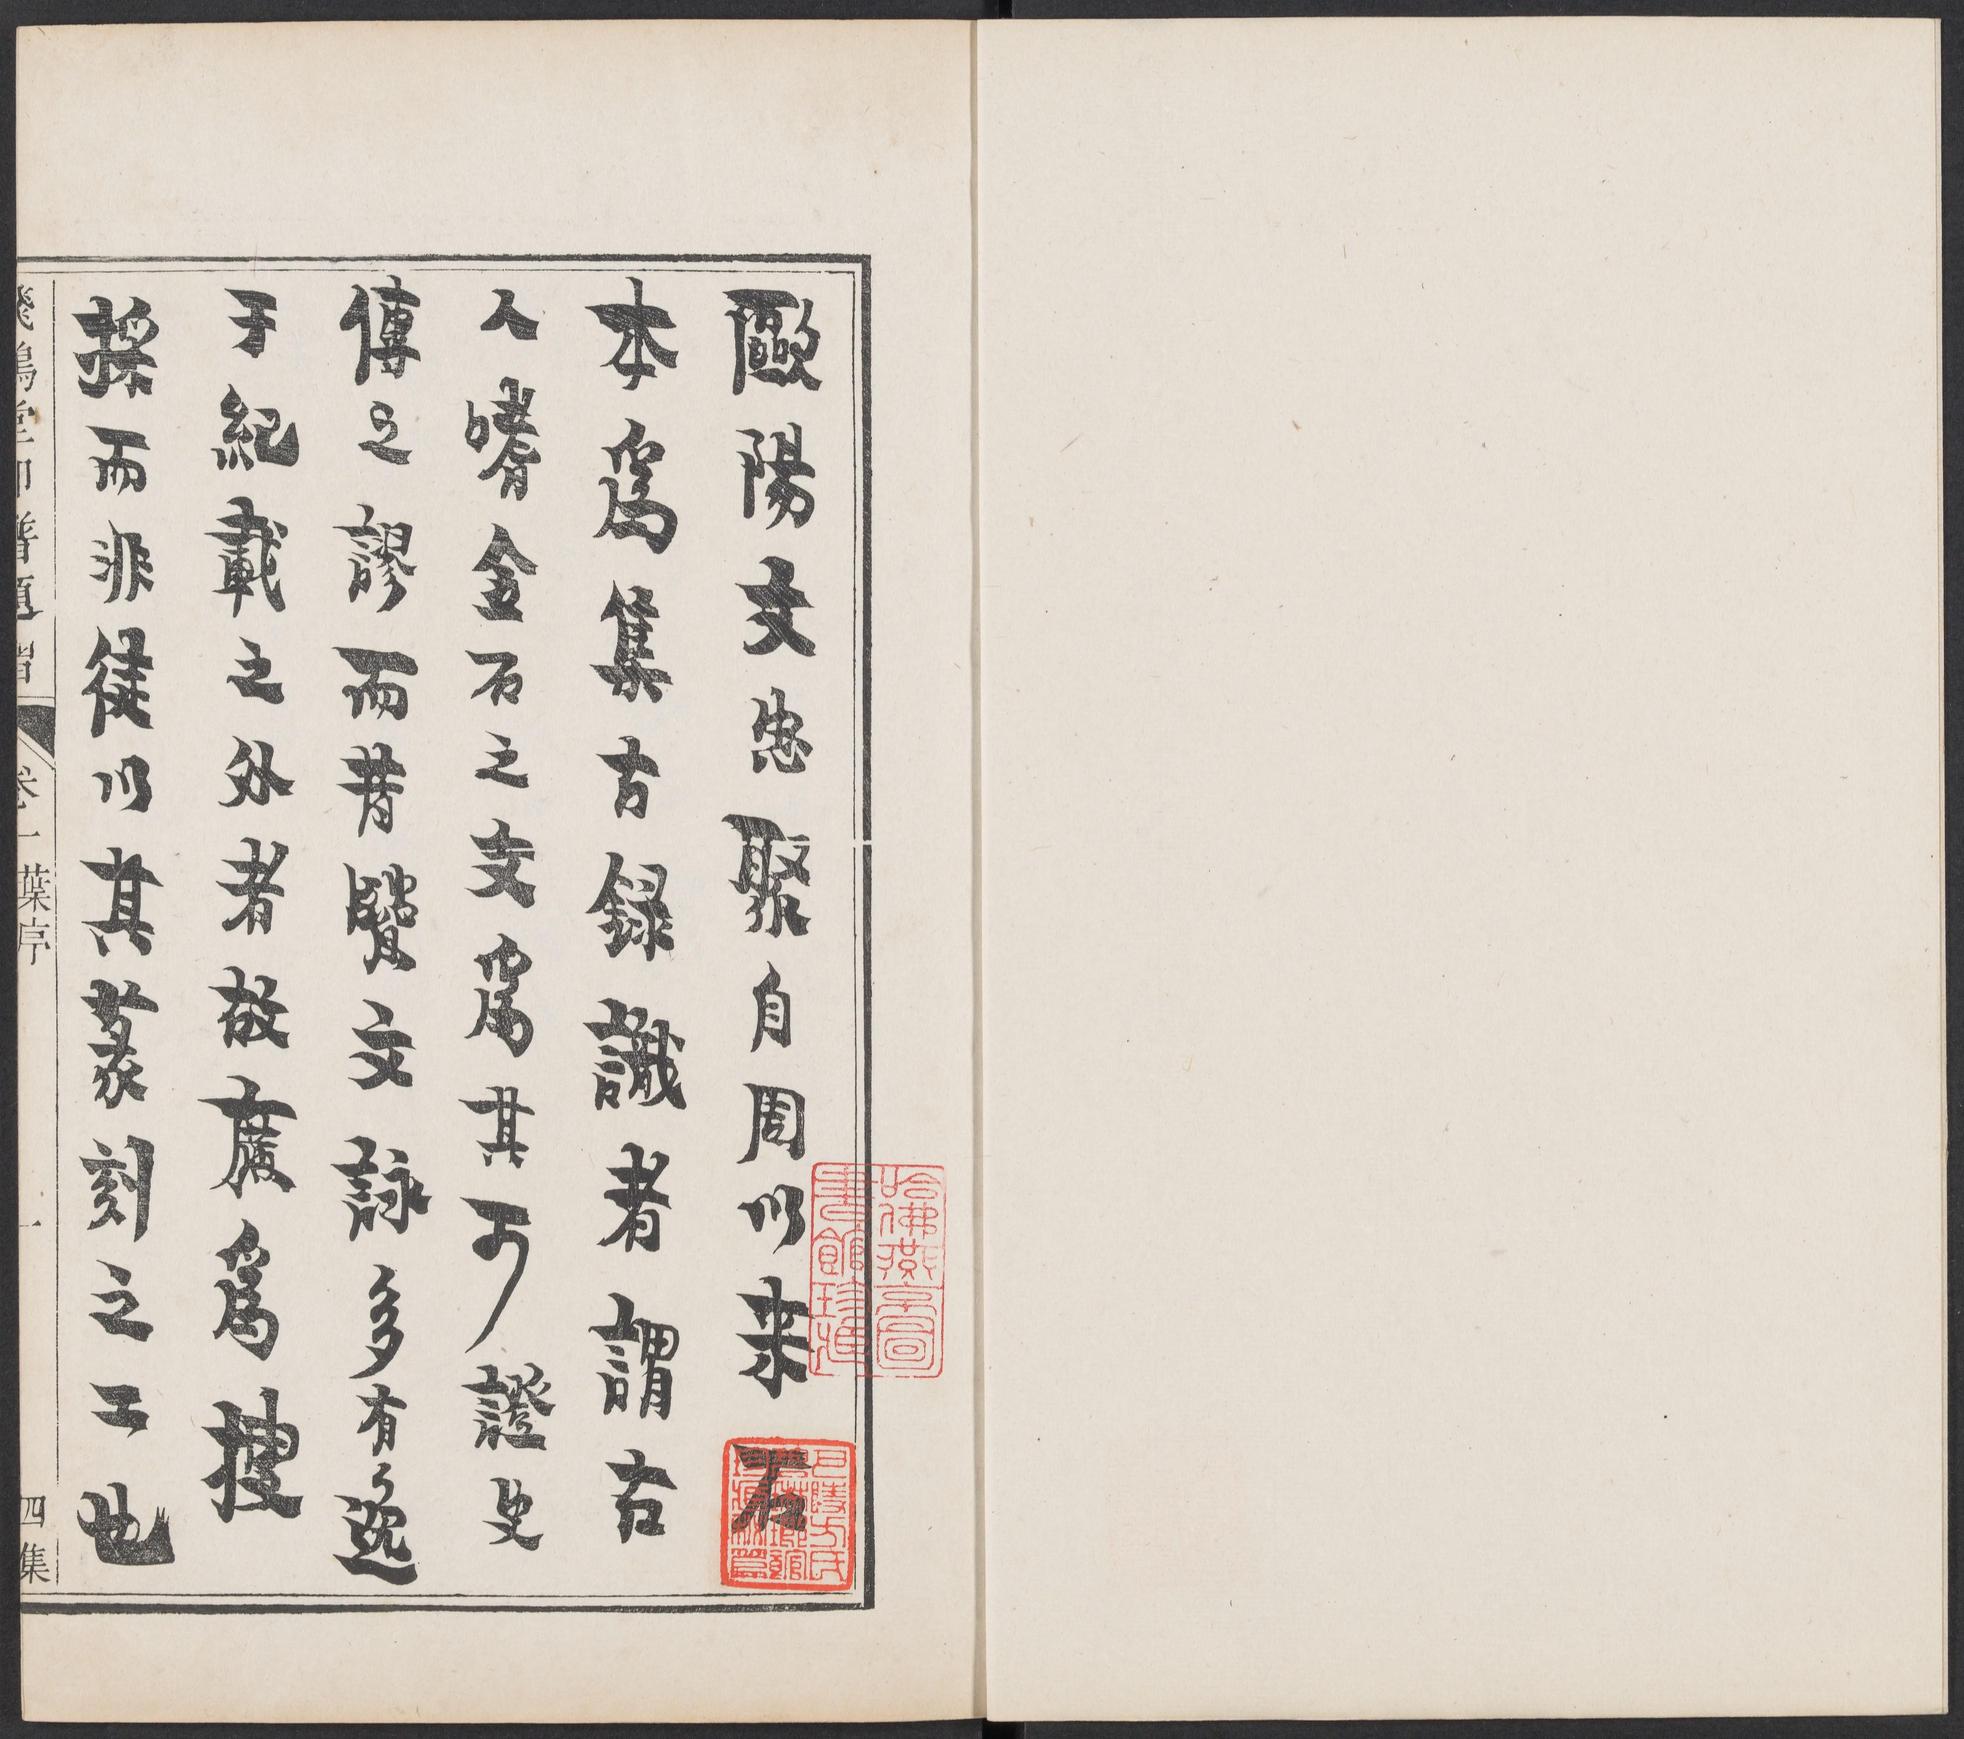 歐陽文忠聚自周以来石
本爲集古録識者謂古
人嗜金石之文爲其可證史
傳之謬而昔賢文詠多有逸
于紀載之外者故廣爲搜
採而非徒以其篆刻之工也
飛鴻堂印譜題
卷一葉序
一
四集
哈佛燕京圖
書館珍藏
巴陵方氏